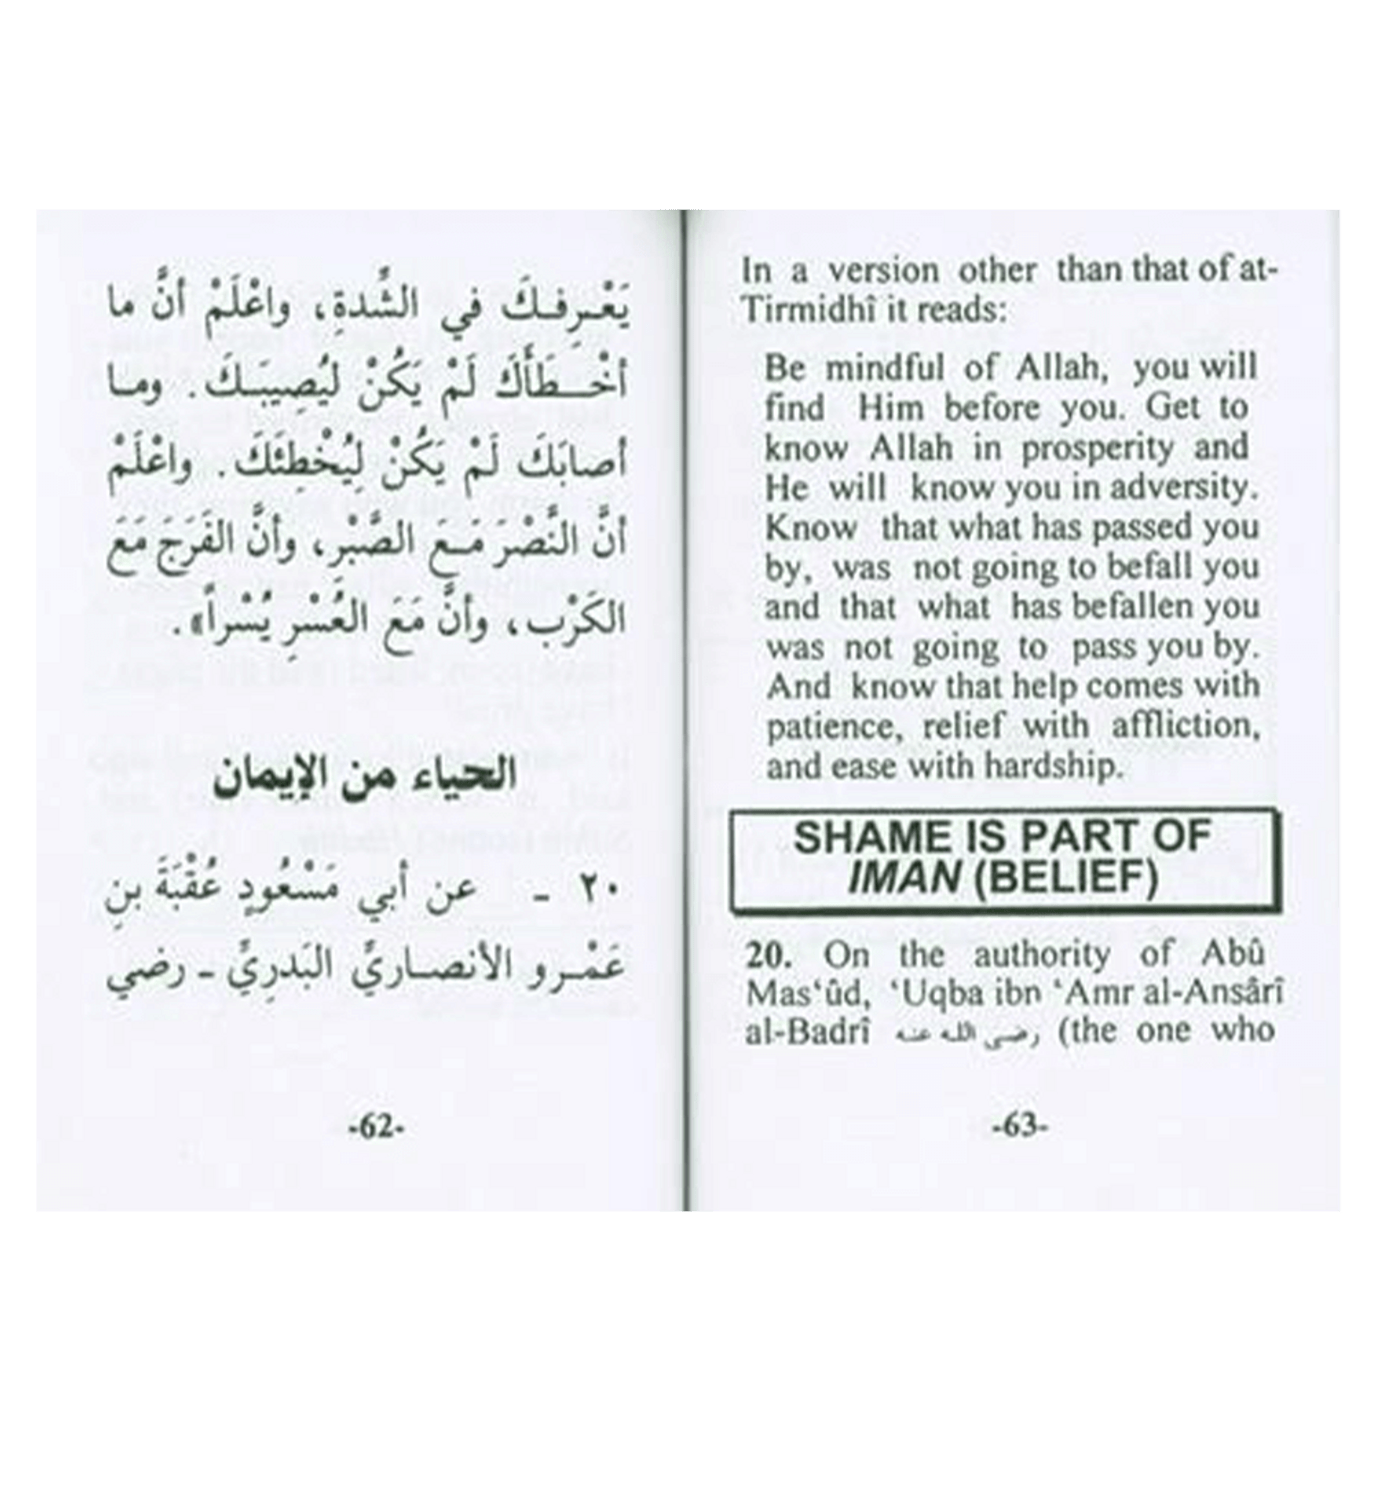 يَعْرِفكَ في الشَّدةِ، واعْلَمْ أنَّ ما
أخْطَأَكَ لَمْ يَكُنْ لِيُصِيبَكَ. وما
أصابَكَ لَمْ يَكُنْ لِيُخْطِئَكَ. واعْلَمْ
أنَّ النَّصْرَ مَعَ الصَّبْرِ، وأنَّ الفَرَجَ مَعَ
الكَرْبِ، وأنَّ مَعَ العُسْرِ يُسْراً».
الحياء من الإيمان
٢٠ - عن أبي مَسْعُودٍ عُقْبَةَ بنِ
عَمْرو الأنصاريِّ البَدرِيِّ - رضي
-62-
In a version other than that of at-
Tirmidhî it reads:
Be mindful of Allah, you will
find Him before you. Get to
know Allah in prosperity and
He will know you in adversity.
Know that what has passed you
by, was not going to befall you
and that what has befallen you
was not going to pass you by.
And know that help comes with
patience, relief with affliction,
and ease with hardship.
SHAME IS PART OF
IMAN (BELIEF)
20. On the authority of Abû
Mas‘ûd, ‘Uqba ibn ‘Amr al-Ansârî
al-Badrî رضي الله عنه (the one who
-63-